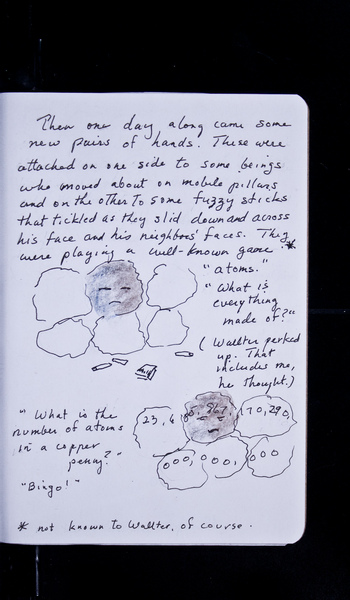 Then one day along came some
new pairs of hands. These were
attached on one side to some beings
who moved about on mobile pillars
and on the other to some fuzzy sticks
that tickled as they slid down and across
his face and his neighbors' faces. They
were playing a well-known game *
"atoms."
"What is
everything
made of?"
(Wallter perked
up. That
includes me,
he thought.)
"What is the
number of atoms
in a copper
penny?"
23, 6 967, 170, 290,
000, 000, 000
"Bingo!"
* not known to Wallter, of course.